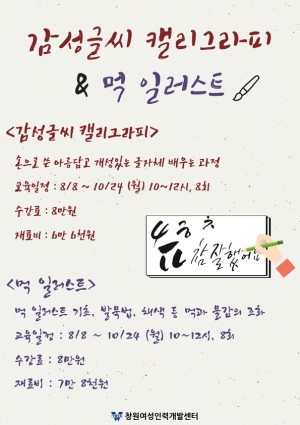 감성글씨 캘리그라피
& 먹 일러스트
<감성글씨 캘리그라피>
손으로 쓴 아름답고 개성있는 글자체 배우는 과정
교육일정 : 8/8 ~ 10/24 (월) 10~12시, 8회
수강료 : 8만원
재료비 : 6만 6천원
참 잘했어요
<먹 일러스트>
먹 일러스트 기초, 발묵법, 채색 등 먹과 물감의 조화
교육일정 : 8/8 ~ 10/24 (월) 10~12시, 8회
수강료 : 8만원
재료비 : 7만 8천원
창원여성인력개발센터